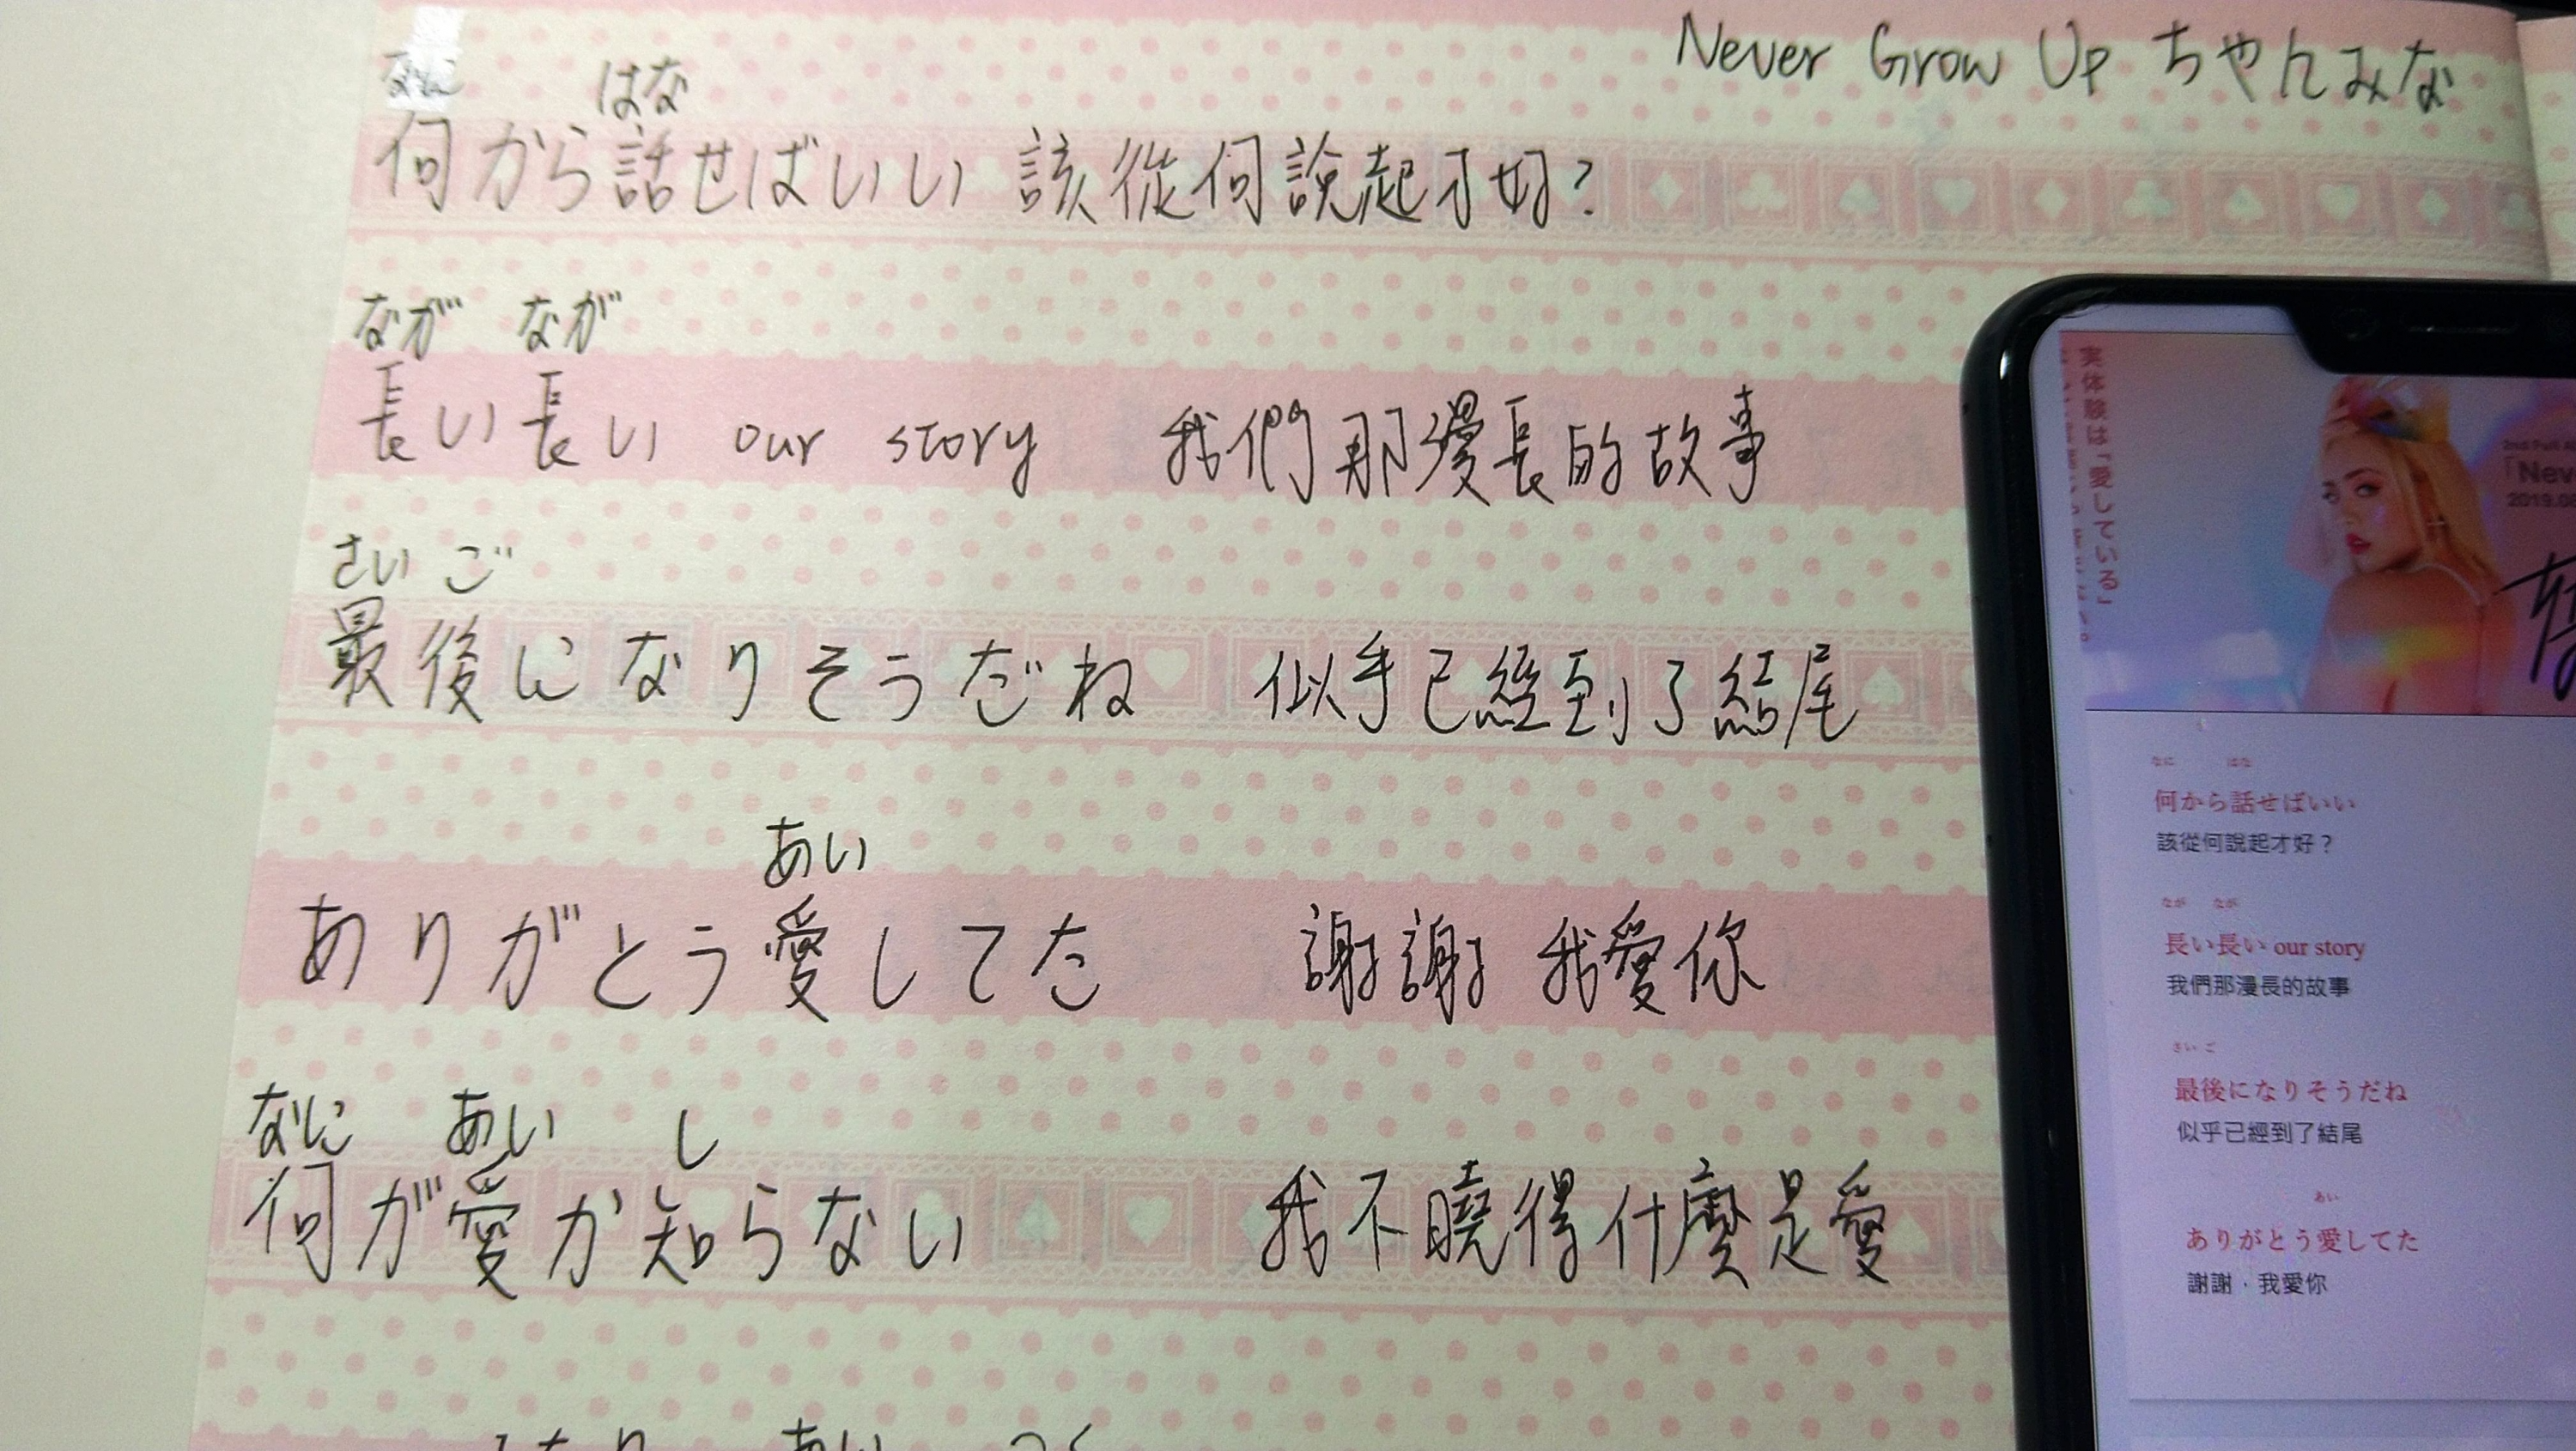 Never Grow Up ちゃんみな
なに はな
何から話せばいい 該從何說起才好?
なが なが
長い長い our story 我們那漫長的故事
さい ご
最後になりそうだね 似乎已經到了結尾
あい
ありがとう愛してた 謝謝 我愛你
なに あい し
何が愛か知らない 我不曉得什麼是愛
実体験は「愛している」
2019.0
なに はな
何から話せばいい
該從何說起才好？
なが なが
長い長い our story
我們那漫長的故事
さい ご
最後になりそうだね
似乎已經到了結尾
あい
ありがとう愛してた
謝謝．我愛你